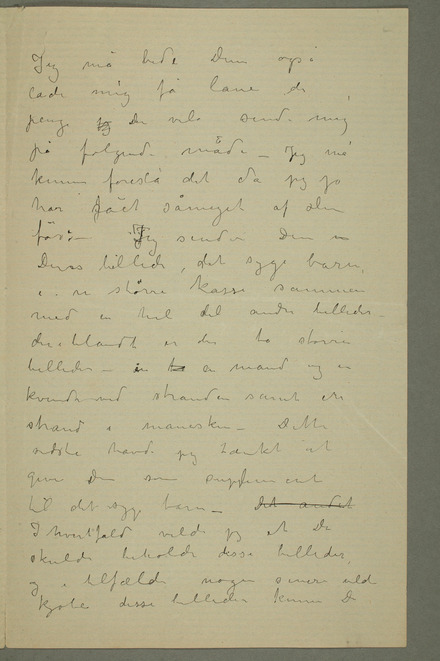 Jeg må bede Dem også
lade mig få låne de
penge De vil sende mig
på følgende måde – Jeg må
kunne foreslå det da jeg jo
har fåèt såmeget af dem
før – Jeg sender Dem en
Deres billede, det syge barn,
i en större Kasse sammen
med en hel del andre billeder –
deriblandt er der to store
billeder – en mand og en
kvinde ved stranden samt en
strand i måneskin – Dette
sidste havde jeg tænkt at
give Dem som supplement
til det syge barn – Det andet
I hvertfald vilde jeg at De
skulde beholde disse billeder,
og i tilfælde nogen senere vilde
kjøbe disse billeder kunne De